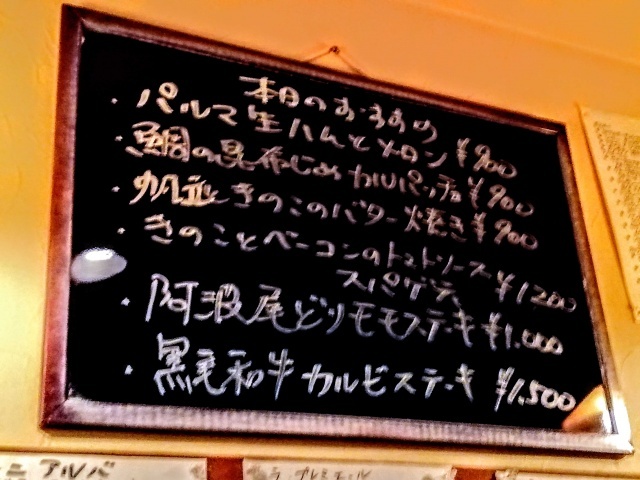 本日のおすすめ
・パルマ生ハムとメロン ¥900
・鯛の昆布じめカルパッチョ ¥900
・帆立ときのこのバター焼き ¥900
・きのことベーコンのトマトソース
スパゲティ ¥1200
・阿波尾どりモモステーキ ¥1.000
・黒毛和牛カルビステーキ ¥1.500
アルバ